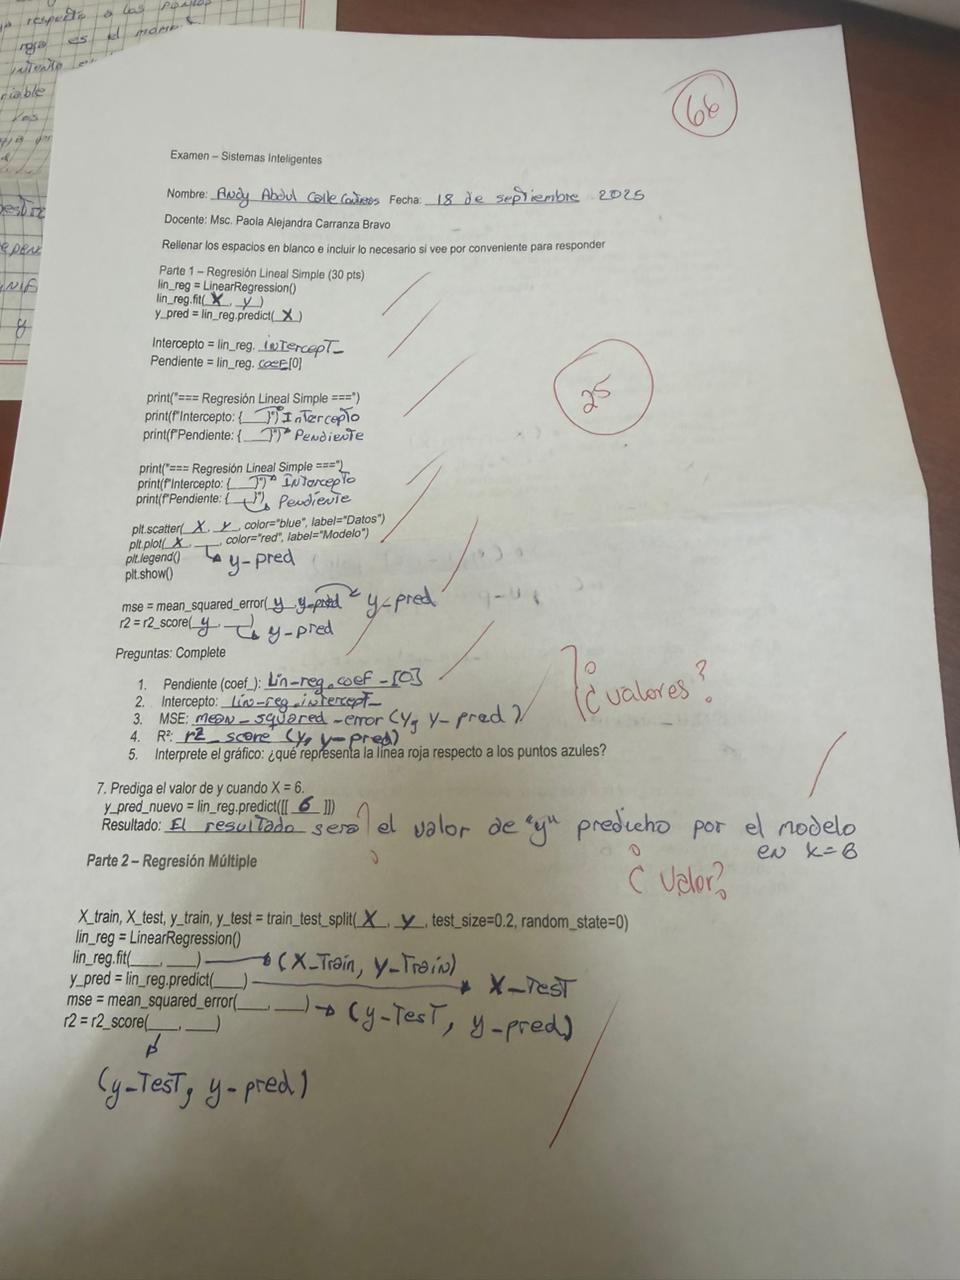 66
Examen – Sistemas Inteligentes
Nombre: Andy Abdul Calle Fecha: 18 de septiembre 2025
Docente: Msc. Paola Alejandra Carranza Bravo
Rellenar los espacios en blanco e incluir lo necesario si vee por conveniente para responder
Parte 1 – Regresión Lineal Simple (30 pts)
lin_reg = LinearRegression()
lin_reg.fit( X , y )
y_pred = lin_reg.predict( X )
Intercepto = lin_reg. intercept_
Pendiente = lin_reg. coef [0]
25
print("=== Regresión Lineal Simple ===")
print(f"Intercepto: {____}") Intercepto
print(f"Pendiente: {____}") Pendiente
print("=== Regresión Lineal Simple ===")
print(f"Intercepto: {____}") Intercepto
print(f"Pendiente: {____}") Pendiente
plt.scatter( X , y , color="blue", label="Datos")
plt.plot( X , ____, color="red", label="Modelo")
plt.legend() y-pred
plt.show()
mse = mean_squared_error( y , y-pred y-pred
r2 = r2_score( y , ____) y-pred
Preguntas: Complete
1. Pendiente (coef_): Lin-reg.coef-[0]
2. Intercepto: lin-reg.intercept_
3. MSE: mean-squared-error (y, y-pred)
4. R²: r2_score (y, y-pred)
¿valores?
5. Interprete el gráfico: ¿qué representa la línea roja respecto a los puntos azules?
7. Prediga el valor de y cuando X = 6.
y_pred_nuevo = lin_reg.predict([[ 6 ]])
Resultado: El resultado sera el valor de "y" predicho por el modelo
en x=6
¿Valor?
Parte 2 – Regresión Múltiple
X_train, X_test, y_train, y_test = train_test_split( X , y , test_size=0.2, random_state=0)
lin_reg = LinearRegression()
lin_reg.fit(____, ____) (X-Train, Y-Train)
y_pred = lin_reg.predict(____) X-Test
mse = mean_squared_error(____, ____) (y-Test, y-pred)
r2 = r2_score(____, ____)
(y-Test, y-pred)